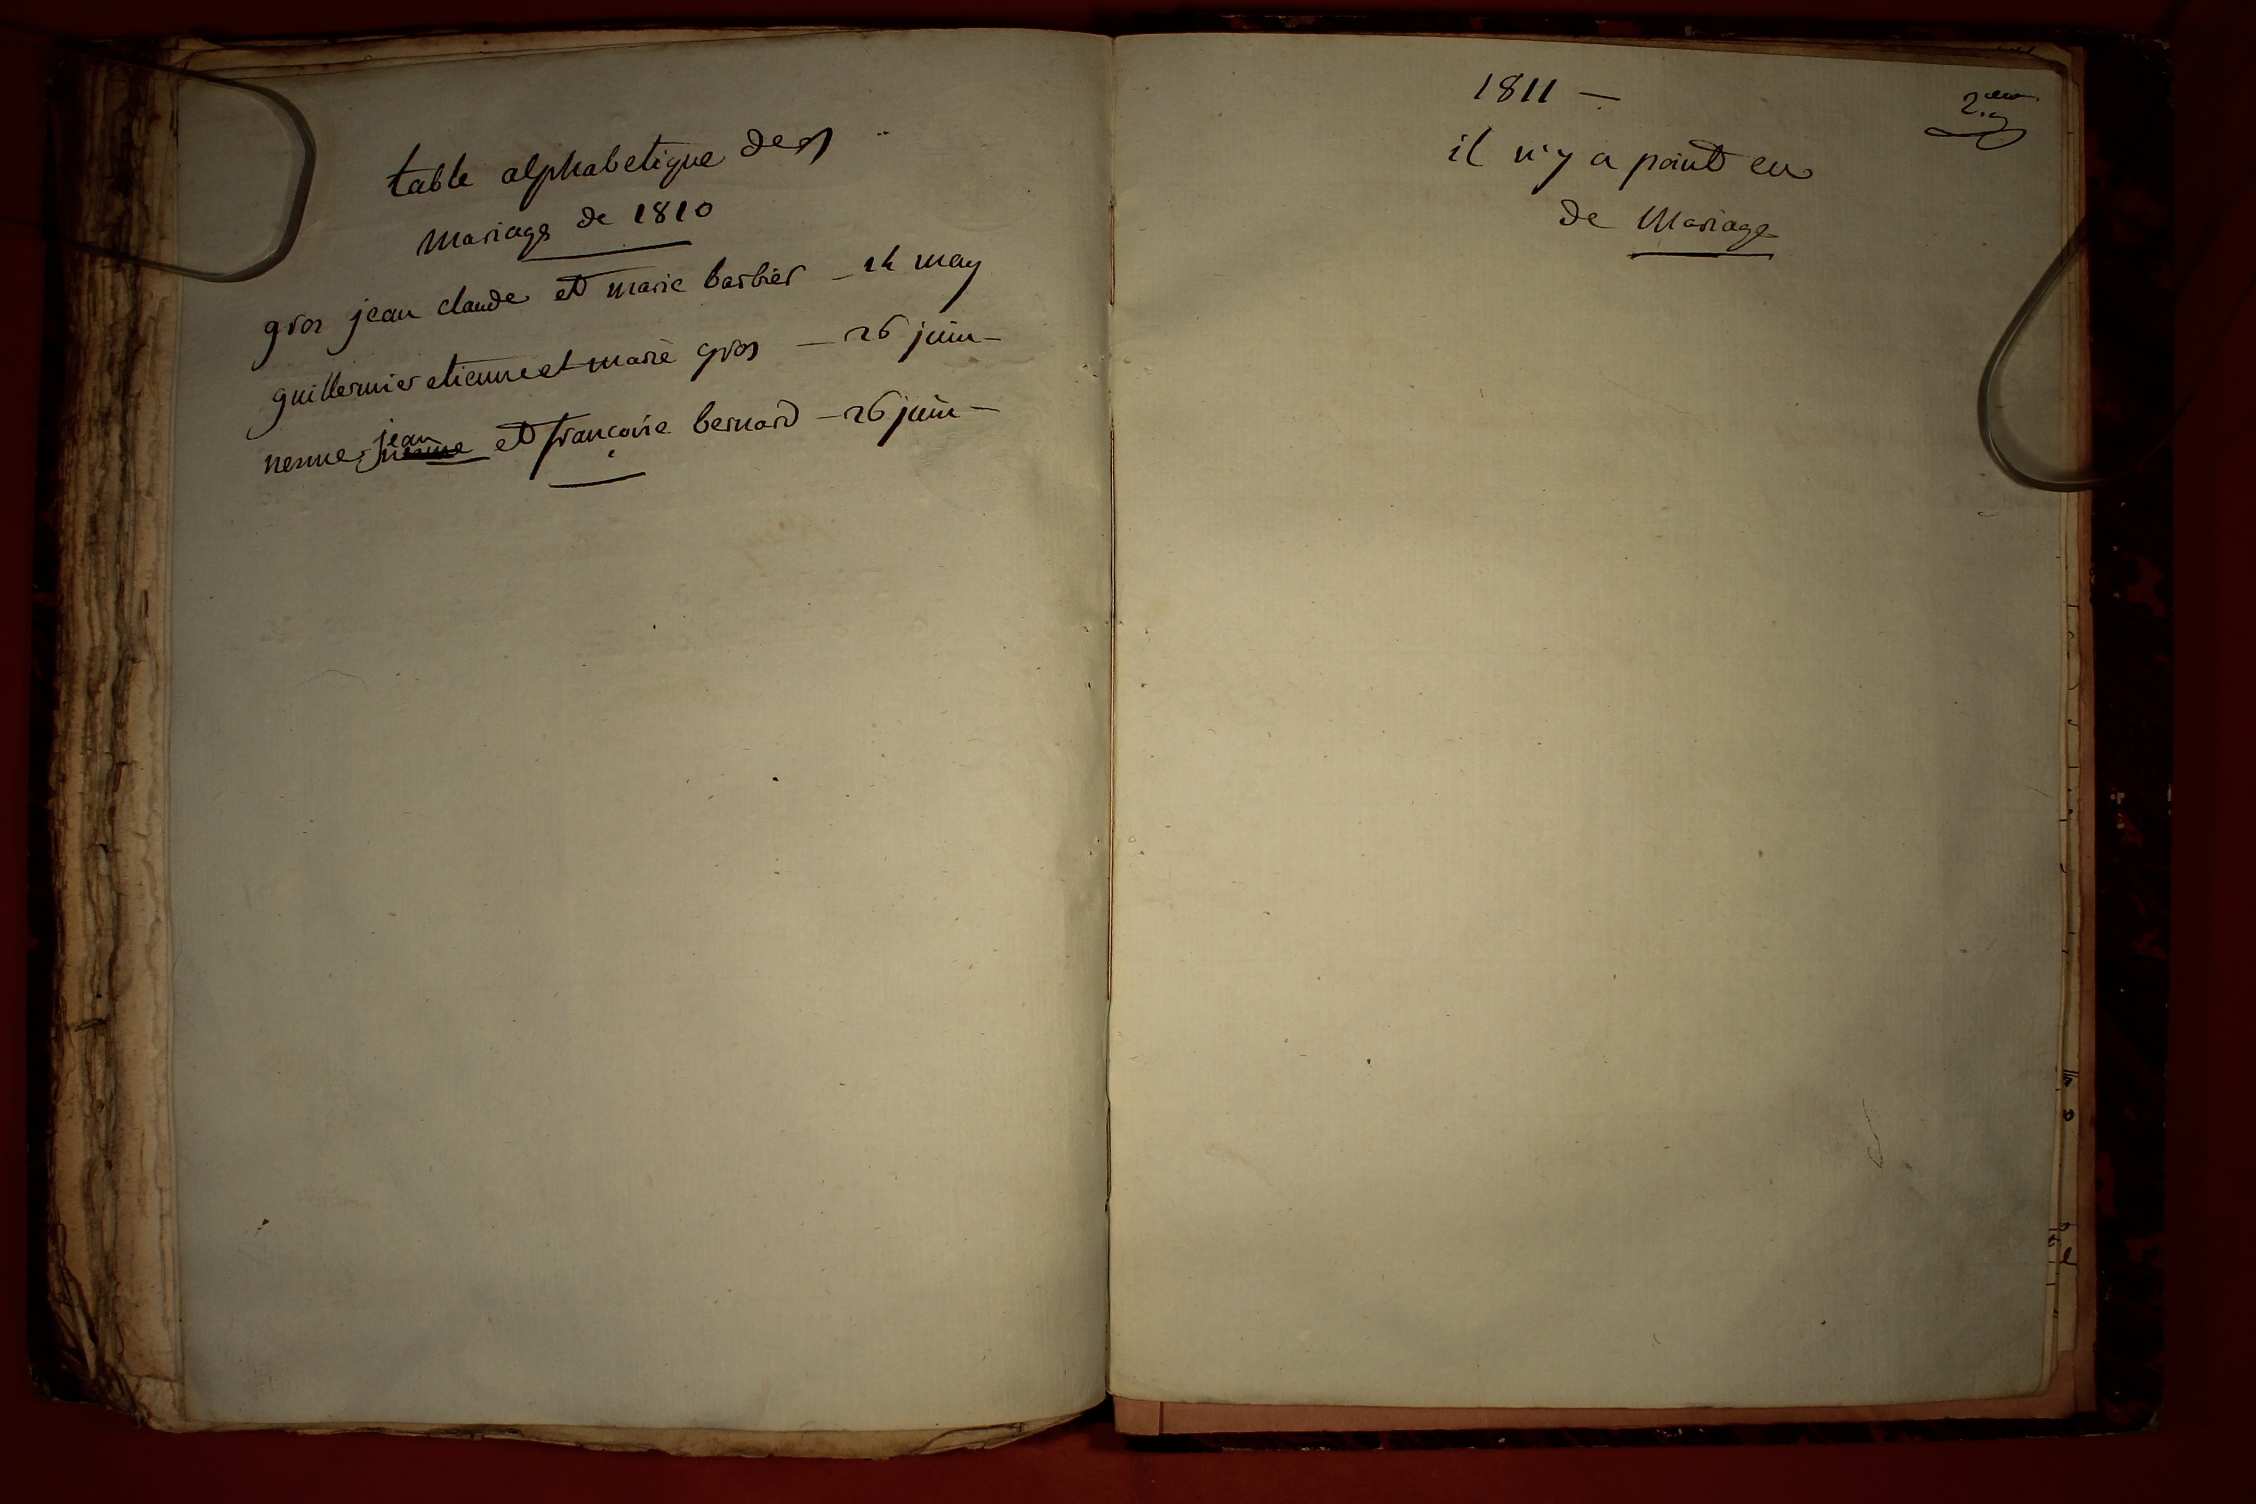 table alphabetique des
mariages de 1810
gros jean claude et marie barbier – 24 may
guillermier etienne et marie gros – 26 juin –
jean
nesme et françoise bernard – 26 juin –
1811 –
2.
il n'y a point eu
de Mariage